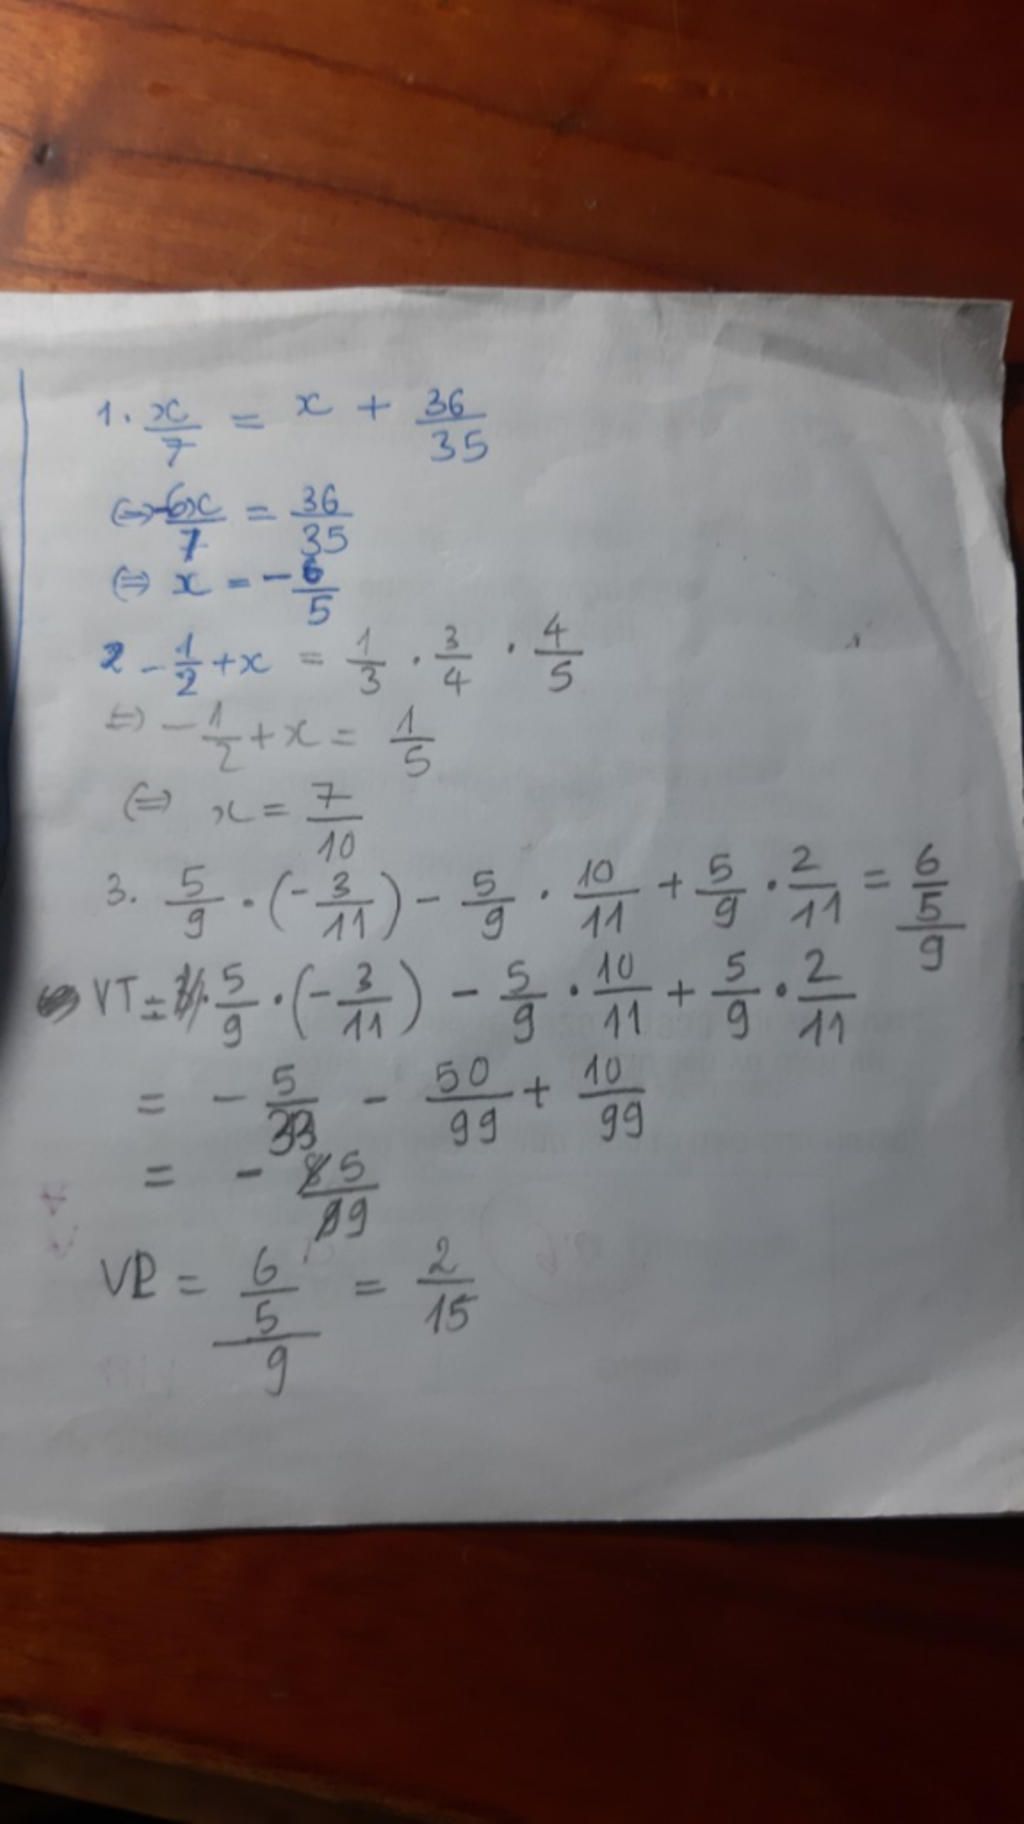 1. x/7 = x + 36/35
⇔ -6x/7 = 36/35
⇔ x = -6/5
2 -1/2 + x = 1/3 . 3/4 . 4/5
⇔ -1/2 + x = 1/5
⇔ x = 7/10
3. 5/9 . (-3/11) - 5/9 . 10/11 + 5/9 . 2/11 = 6/5/9
VT = 5/9 . (-3/11) - 5/9 . 10/11 + 5/9 . 2/11
= - 5/33 - 50/99 + 10/99
= - 5/9
VP = 6/5/9 = 2/15